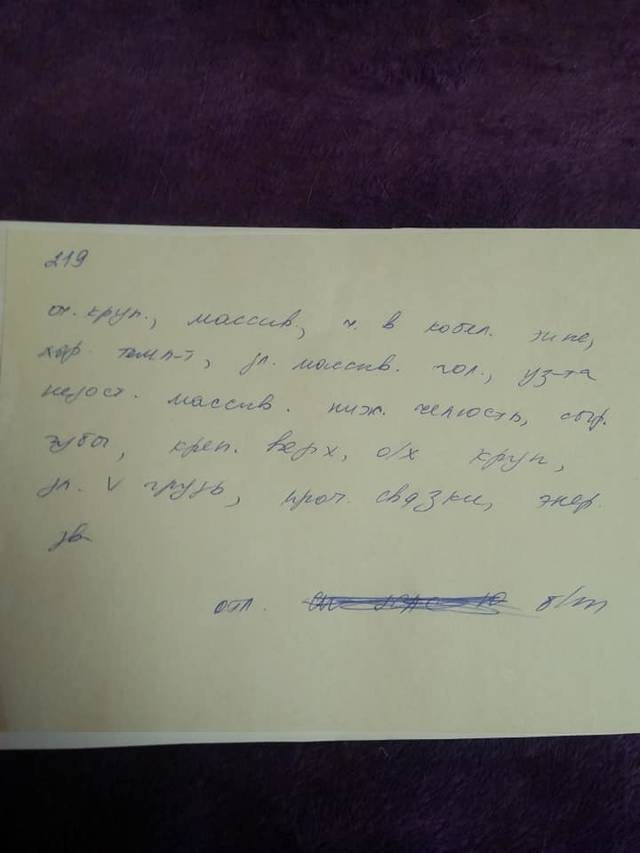 219
оч. круп., массив., ч. в кобел. типе,
хор. темп-т, дл. массив. гол., уз-та
недост. массив. ниж. челюсть, сыр.
зубы, креп. верх, о/х круп,
дл. V грудь, проч. связки, энер.
дв
отл. б/т